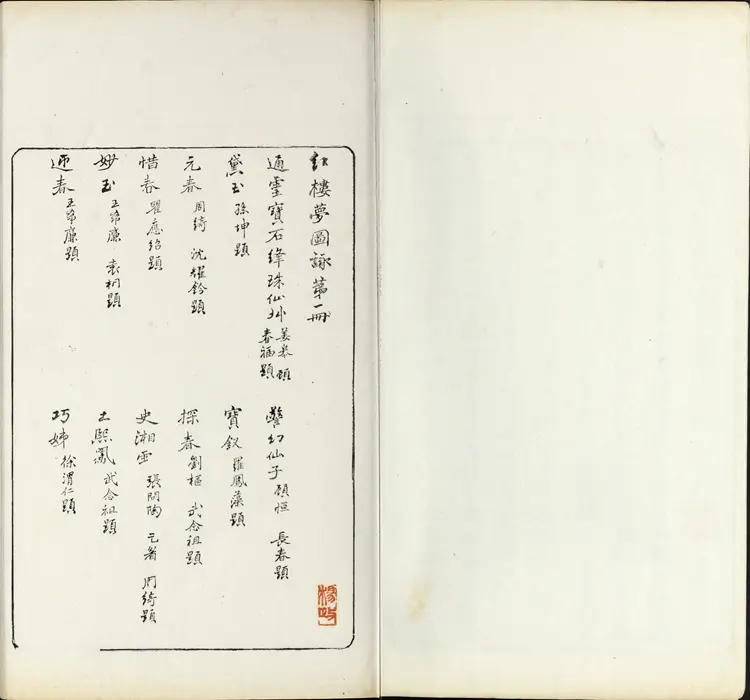 紅樓夢圖詠第一冊
通靈寶石絳珠仙艸 姜皋題 春福題
警幻仙子 顧恒 長春題
黛玉 孫坤題
寶釵 羅鳳藻題
元春 周綺 沈耀鈴題
探春 劉樞 武念祖題
惜春 瞿應紹題
史湘雲 張問陶 乞者 周綺題
妙玉 王希廉 袁桐題
王熙鳳 武念祖題
迎春 王希廉題
巧姊 徐渭仁題